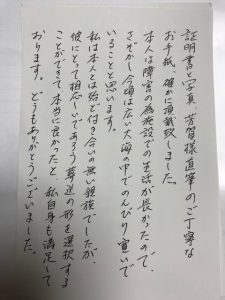 証明書と写真、芳賀様直筆のご丁寧な
お手紙、確かに頂戴致しました。
本人は障害の為施設での生活が長かったので、
さぞかし今頃は広い大海の中でのんびり寛いで
いることと思います。
私は本人とは殆ど付き合いの無い親族でしたが、
彼にとって相応しいであろう葬送の形を選択する
ことができて本当に良かったと、私自身も満足して
おります。どうもありがとうございました。